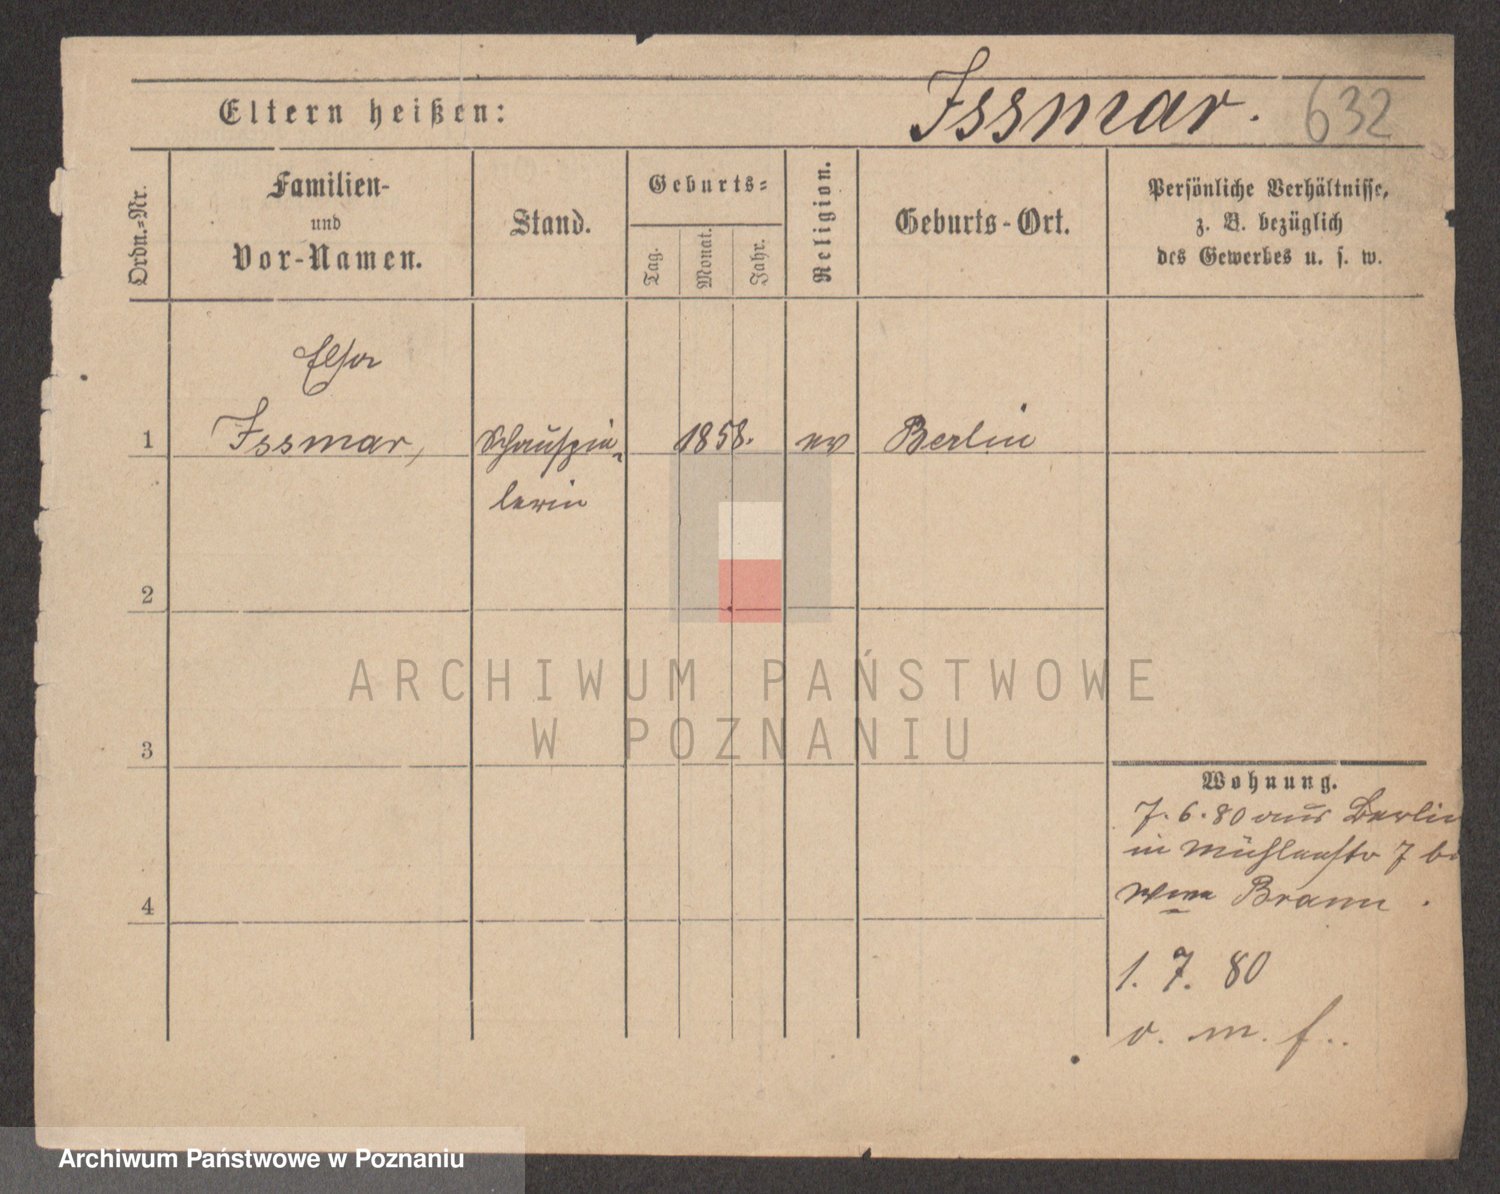 Eltern heißen:
Issmar. 632
Ordn.-Nr.
Familien-
und
Vor-Namen.
Stand.
Geburts-
Tag.
Monat.
Jahr.
Religion.
Geburts-Ort.
Persönliche Verhältnisse,
z. B. bezüglich
des Gewerbes u. s. w.
Elsa
1 Issmar, Schauspie- 1858. ev Berlin
lerin
2
3
4
Wohnung.
7. 6. 80 aus Berlin
in Mühlenstr 7 bei
Wwe Braun.
1. 7. 80
v. m. f..
ARCHIWUM PAŃSTWOWE
W POZNANIU
Archiwum Państwowe w Poznaniu